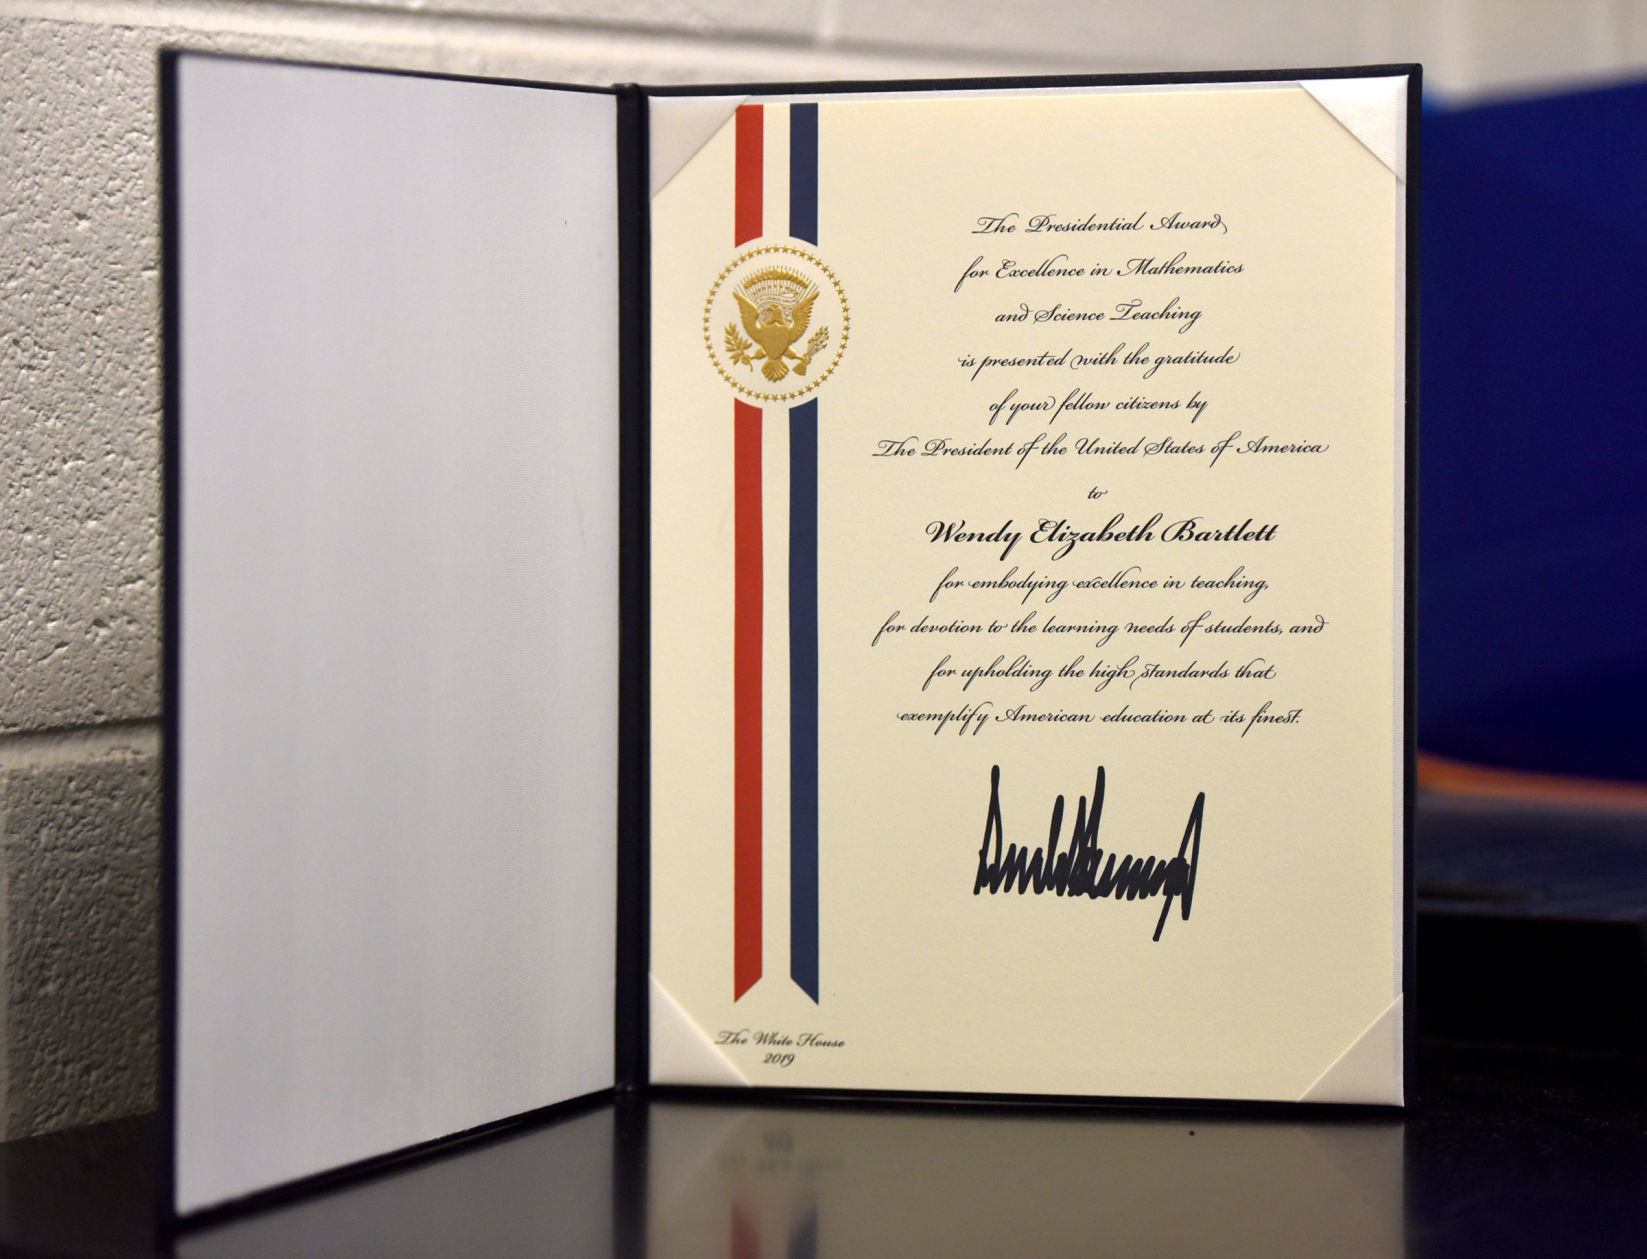 The Presidential Award
for Excellence in Mathematics
and Science Teaching
is presented with the gratitude
of your fellow citizens by
The President of the United States of America
to
Wendy Elizabeth Bartlett
for embodying excellence in teaching,
for devotion to the learning needs of students, and
for upholding the high standards that
exemplify American education at its finest.
The White House
2019